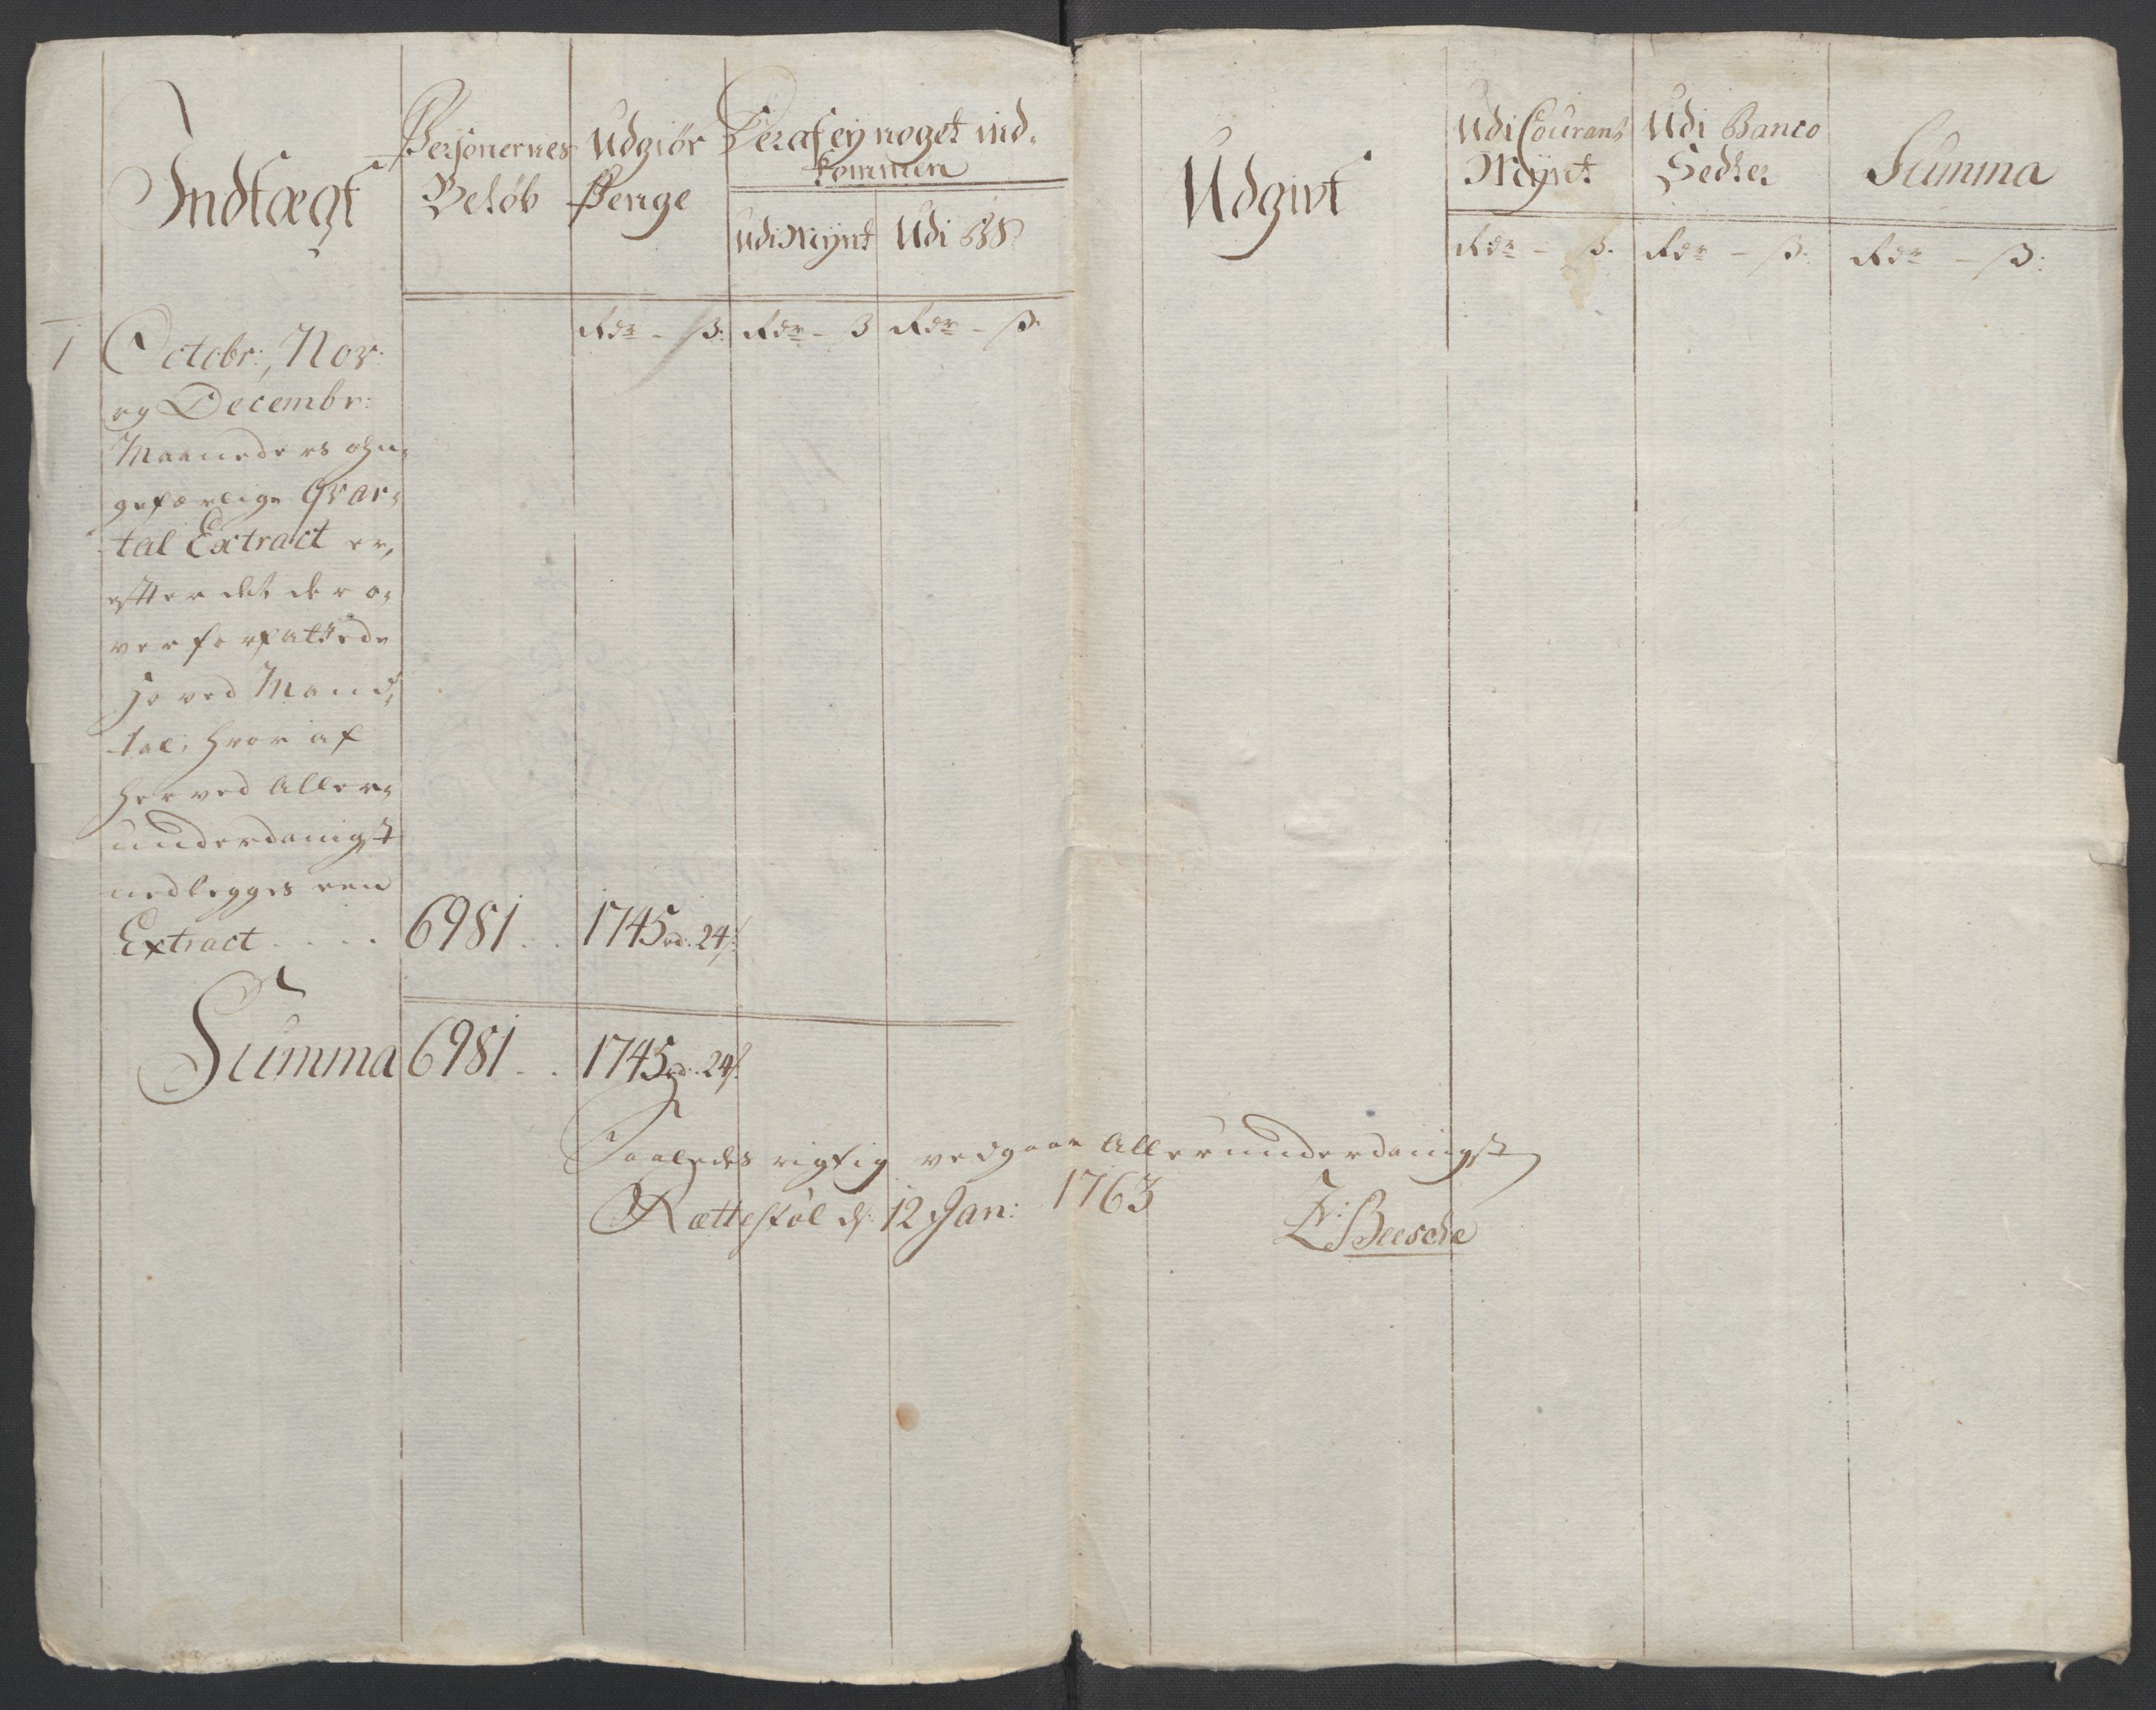 Indtægt
Personernes
Beløb
Udgiør
Penge
Deraf ey noget ind-
kommen
Udi Mynt
Udi BS:
Rdr - ß: Rdr - ß Rdr - ß:
1
Octobr:, Nov:
og Decembr:
Maaneders ohn-
gefærlige Qvar-
tal Extract er,
efter det der o-
ver forfattede
Hoved Mand-
tal, hvor af
herved Aller-
underdanigst
nedlegges een
Extract . . . . 6981 . . 1745 rd: 24 ß:
Summa 6981 . . 1745 rd: 24 ß:
Udgivt
Udi Courant
Mynt
Udi Banco
Sedler
Summa
Rdr - ß: Rdr - ß: Rdr - ß:
Saaledes rigtig vedgaaes Allerunderdanigst
Rættestøl d: 12 Jan: 1763